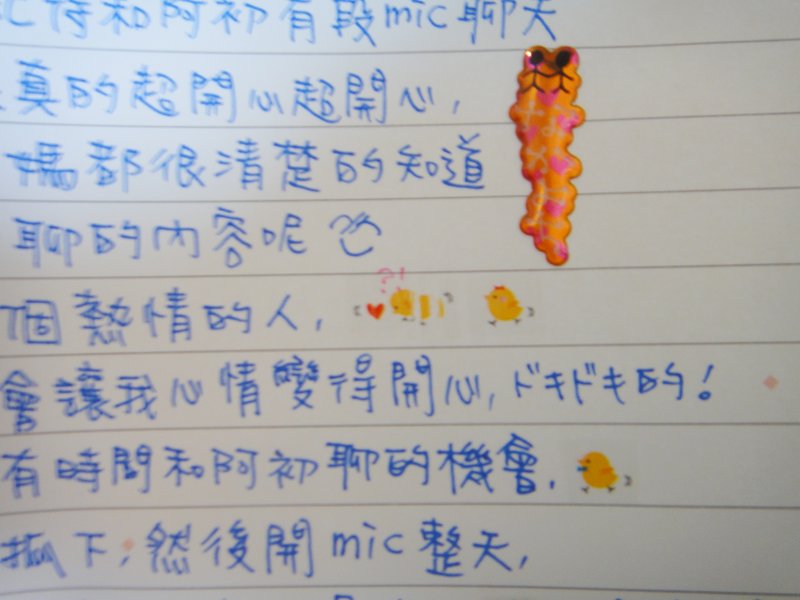 時和阿初有段mic聊天
真的超開心超開心,
媽都很清楚的知道
聊的內容呢
個熱情的人,
?!
會讓我心情變得開心, ドキドキ的!
有時間和阿初聊的機會.
下, 然後開mic整天,